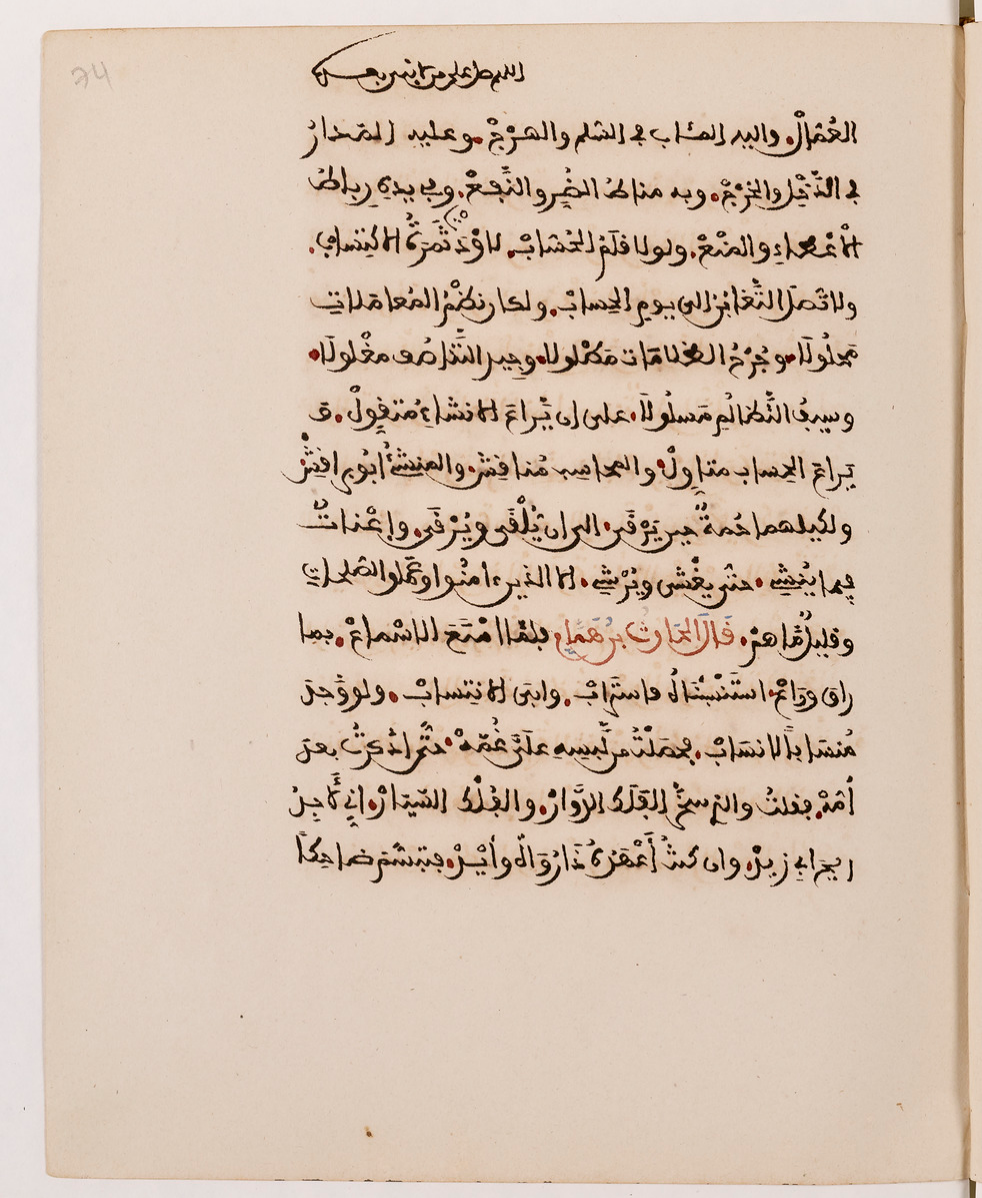 74
اللهم صل على من لا نبي بعده
العُمَّالْ. واليه المئاب في السلم والهرْجْ. وعليه المَدارُ
في الدَّخْلِ والخَرْجْ. وبه مناطُ الضُّرِ والنَّفعْ. وفي يدِهِ رِباطُ
الاعْطاءِ والمنْعْ. ولولا قلَمُ الحُسّابْ. لاوْدَتْ ثَمَرَةُ الاكتِسابِ.
ولاتَّصَلَ التَّغابُنُ إلى يومِ الحِسابْ. ولكان نظْمُ المُعامَلاتِ
مَحلُولًا. وجُرْحُ الظُّلامَات مَطْلولا. وجيد التَّناصُف مغْلولًا.
وسيفُ التَّظالُمِ مَسلُولًا. على ان يَراعَ الانشاءِ مُتقوِلْ. و
يَراعَ الحِساب متاوِلْ. والمحاسِب مُناقِشْ. والمنشئُ ابُو براقِشْ
ولكليهما حُمةٌ حين يَرْقَى. الى ان يُلْقَى ويُرْقَى. واِعْناتٌ
فيما يُنشِي. حتى يغْشَى ويُرْشِي. الا الذين ءامَنُوا وعَمِلُوا الصّلحات
وقليلٌ مَّا همْ. قَالَ الحَارثُ بنُ هَمَّام فلمَّا امْتَعَ الاسْماعْ. بما
راق ورَاعْ. استَنْسَبْنَاهُ فاستَرابْ. وابَى الانتِسابْ. ولو وَجَدَ
مُنسَاباً لانسَابْ. فحصَلْتُ من لَبسِهِ علَى غُمَّةْ. حتَّى ادّكرْتُ بعدَ
اُمَةْ. فقلتُ والذي سخَّرَ الفَلَكَ الدَّوّارْ. والفُلْكَ السَّيّارْ. اِنِّي لَأَجِدُ
ريح ابي زيدْ. وان كنتُ أَعْهَدُهُ ذَا رُوَاءٍ وأَيْدْ. فتبسَّمَ ضَاحِكاً